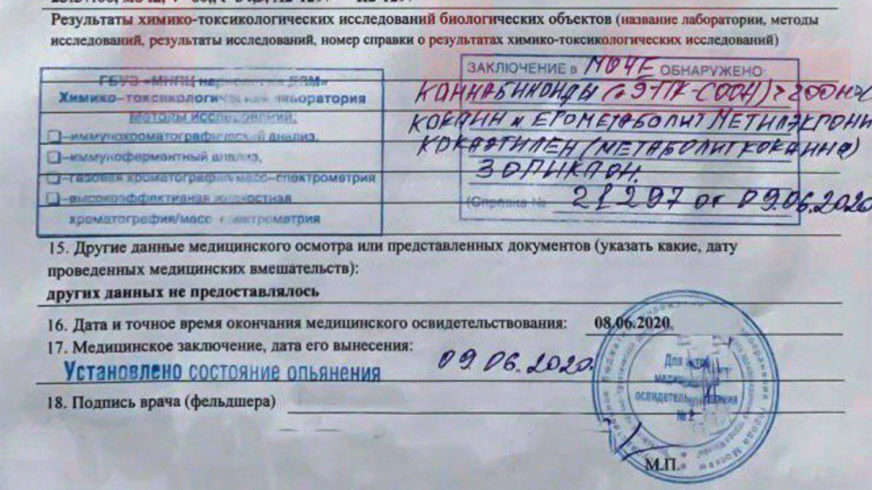 Результаты химико-токсикологических исследований биологических объектов (название лаборатории, методы
исследований, результаты исследований, номер справки о результатах химико-токсикологических исследований)
ГБУЗ «МНПЦ наркологии ДЗМ»
Химико-токсикологическая лаборатория
Методы исследований:
–иммунохроматографический анализ,
–иммуноферментный анализ,
–газовая хроматография/масс-спектрометрия
–высокоэффективная жидкостная
хроматография/масс-спектрометрия
ЗАКЛЮЧЕНИЕ в МОЧЕ ОБНАРУЖЕНО:
КАННАБИНОИДЫ
КОКАИН и ЕГО МЕТАБОЛИТ
КОКАЭТИЛЕН (МЕТАБОЛИТ КОКАИНА)
ЗОПИКЛОН.
(Справка № 21297 от 09.06.2020
15. Другие данные медицинского осмотра или представленных документов (указать какие, дату
проведенных медицинских вмешательств):
других данных не предоставлялось
16. Дата и точное время окончания медицинского освидетельствования: 08.06.2020,
17. Медицинское заключение, дата его вынесения:
Установлено состояние опьянения 09.06.2020.
18. Подпись врача (фельдшера)
Для
освидетельствования
№ 2
М.П.